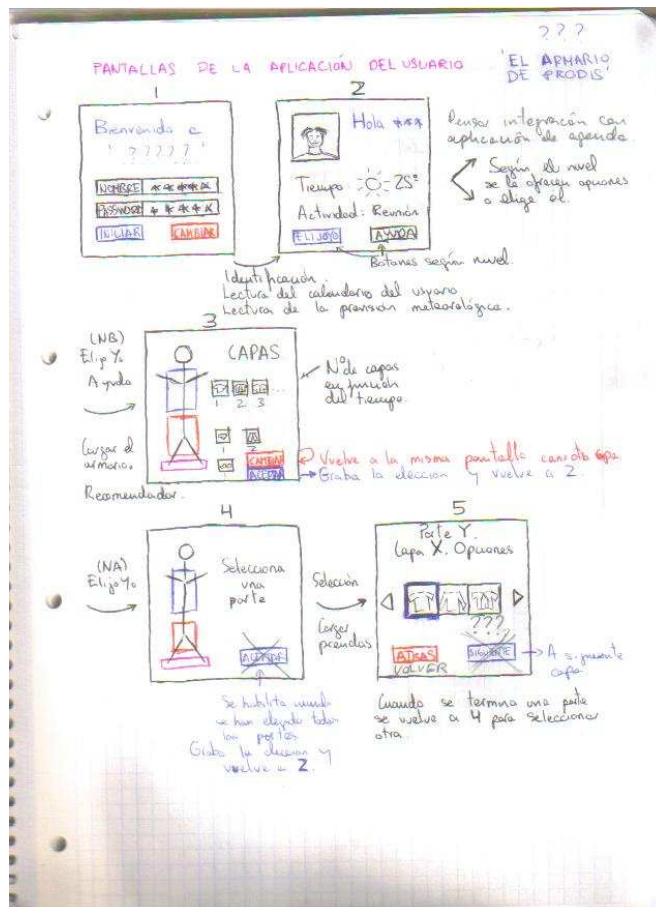 ???
PANTALLAS DE LA APLICACIÓN DEL USUARIO
'EL ARMARIO
DE PRODIS'
1
Bienvenido a
' ????? '
NOMBRE *****
PASSWORD *****
INICIAR CAMBIAR
2
Hola ***
Tiempo 25º
Actividad: Reunión
ELIJO YO AYUDA
Pensar integración con
aplicación de agenda.
Según el nivel
se le ofrecen opciones
o elige él.
Botones según nivel.
Identificación.
Lectura del calendario del usuario
Lectura de la previsión meteorológica.
3
(NB)
Elijo Yo
Ayuda
Cargar el
armario.
Recomendador.
CAPAS
1 2 3 ...
1 2
1
CAMBIAR
ACEPTAR
Nº de capas
en función
del tiempo.
Vuelve a la misma pantalla capa
Graba la elección y vuelve a 2.
4
(NA)
Elijo Yo
Selecciona
una
parte
ACEPTAR
Se habilita cuando
se han elegido todas
las partes
Graba la elección y
vuelve a 2.
Selección
Cargar
prendas
5
Parte Y.
Capa X. Opciones
???
ATRAS
VOLVER
SIGUIENTE
A siguiente
capa
Cuando se termina una parte
se vuelve a 4 para seleccionar
otra.